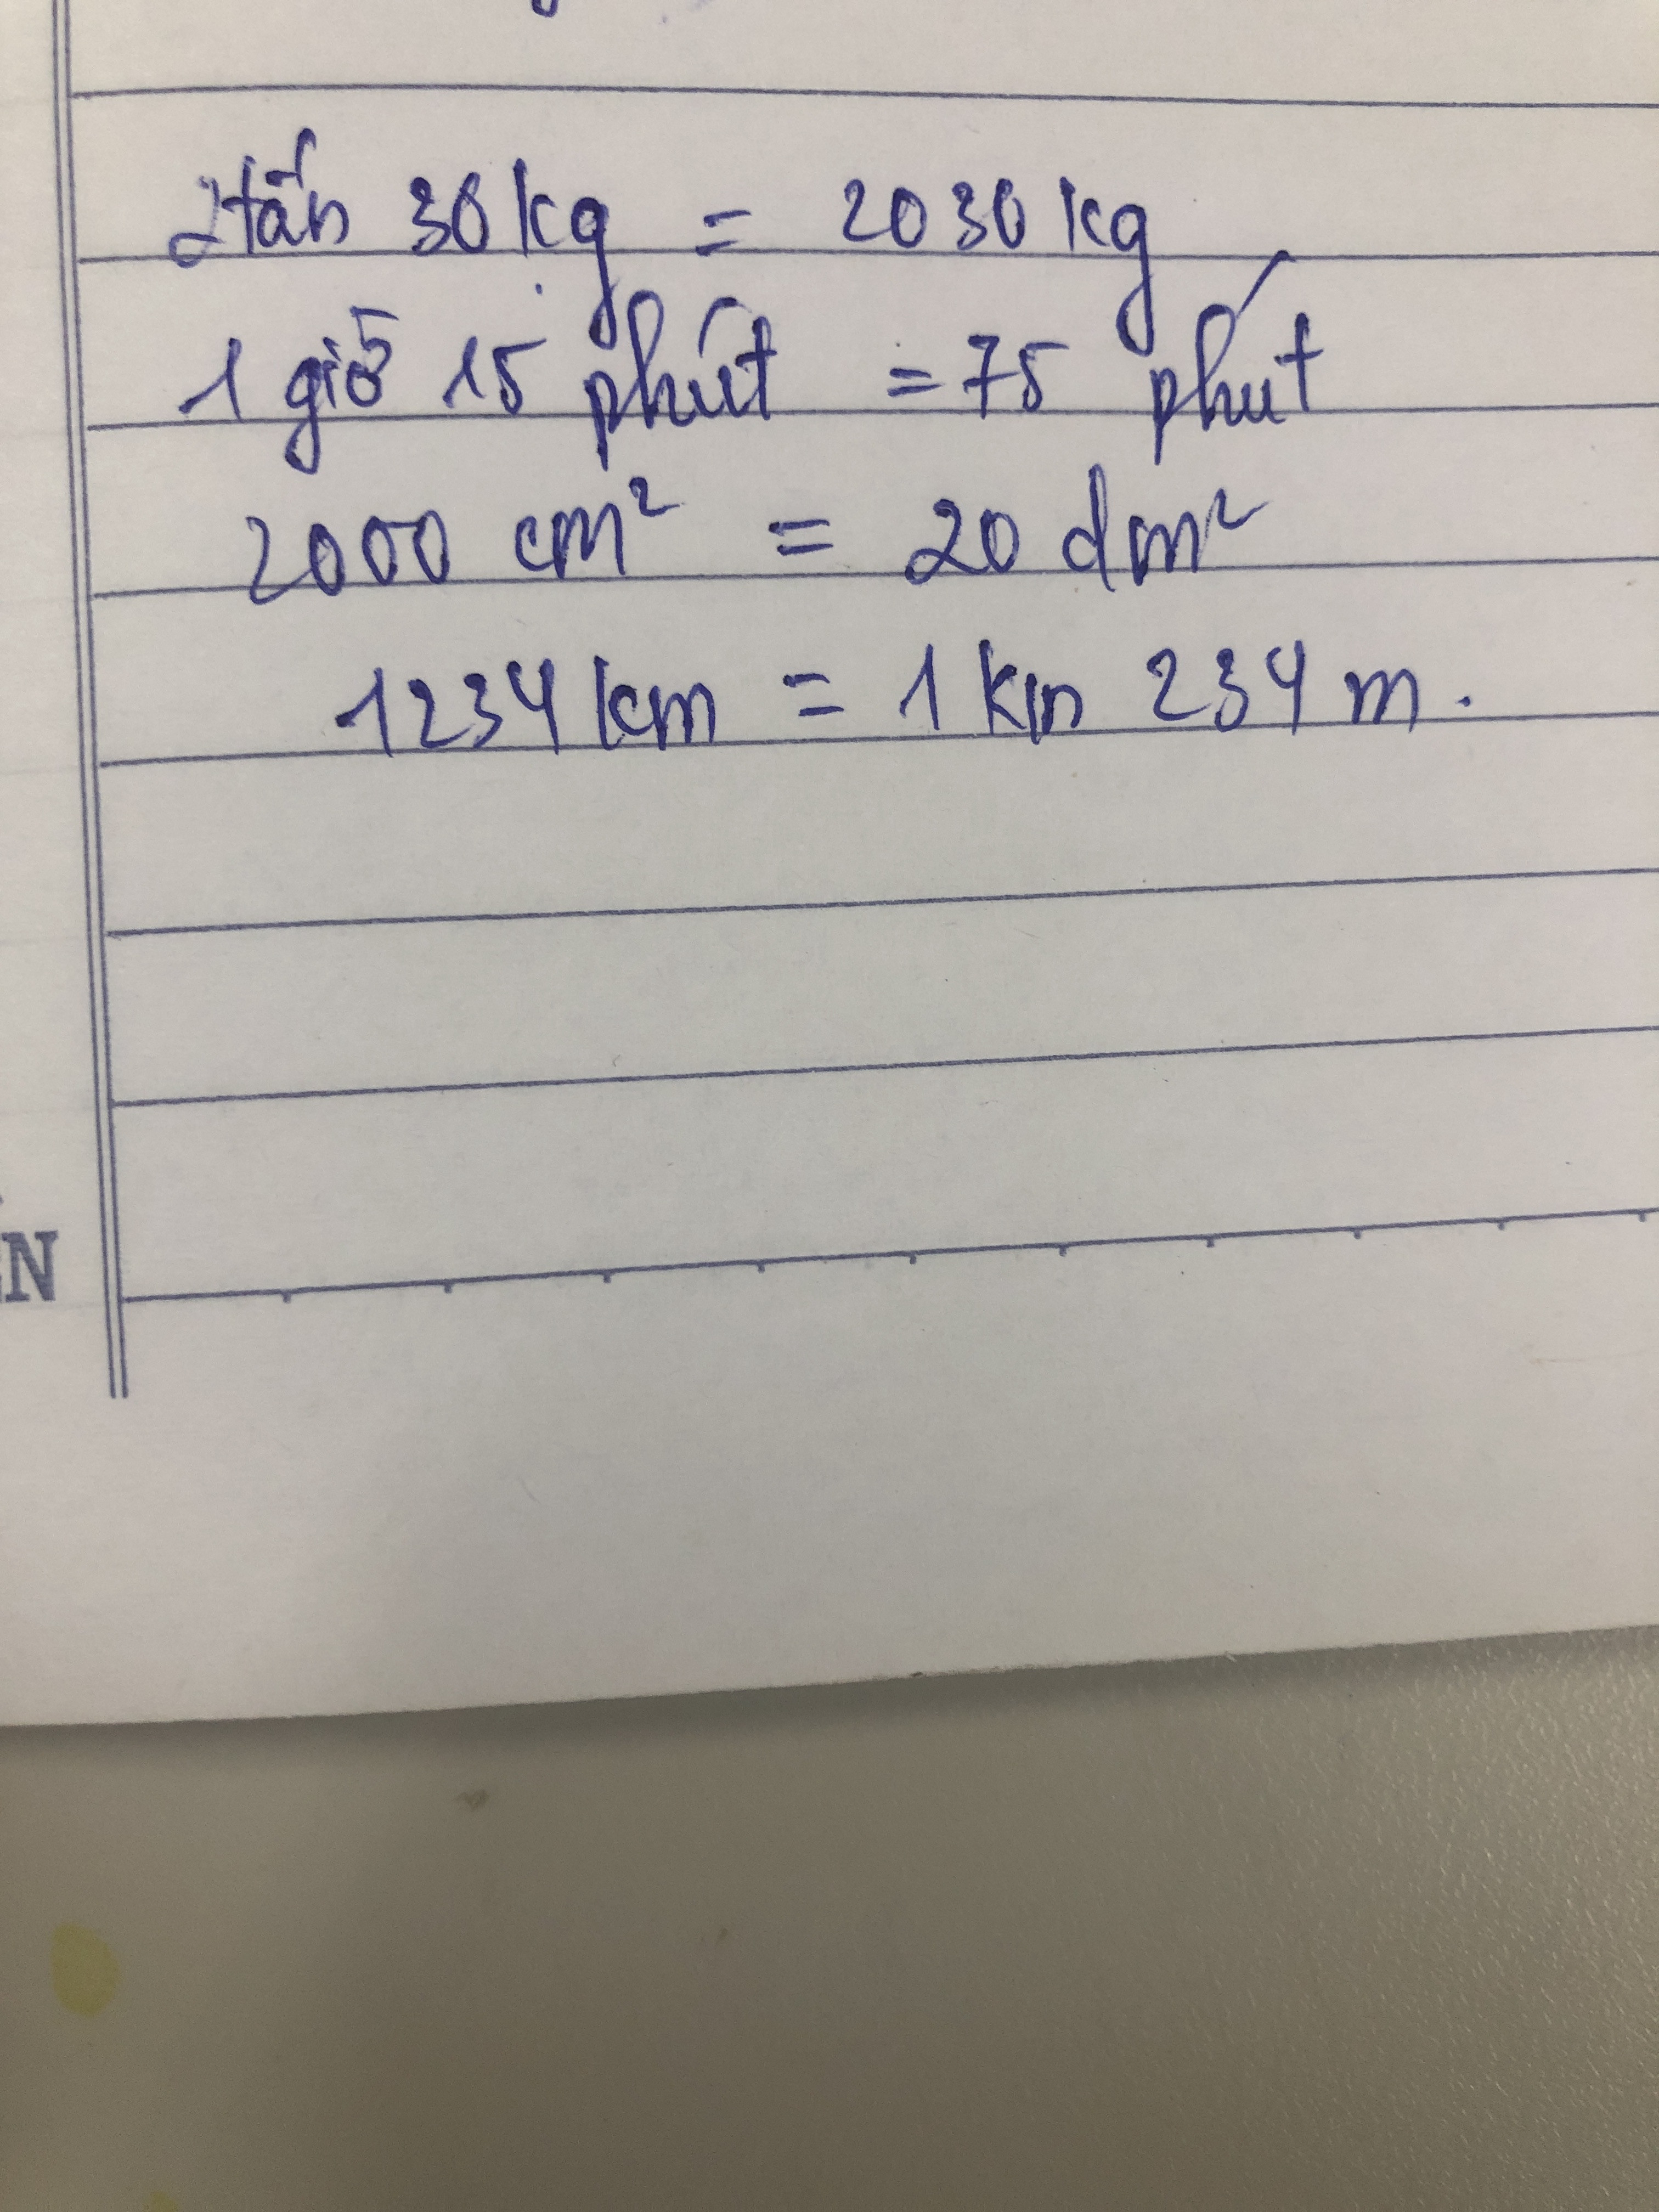 2 tấn 30 kg = 2030 kg
1 giờ 15 phút = 75 phút
2000 cm² = 20 dm²
1234 km = 1 km 234 m.